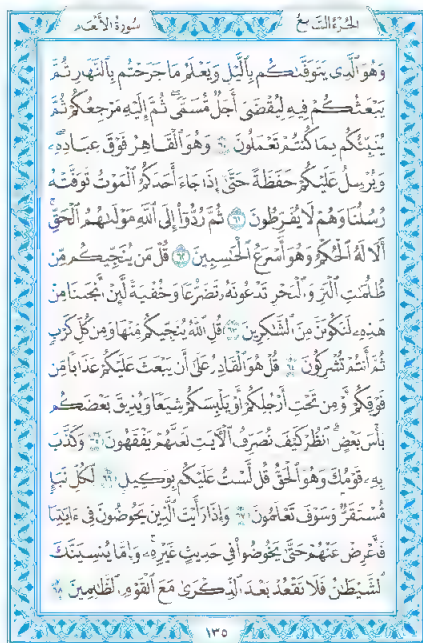 الجزء السابع سورة الأنعام
وَهُوَ ٱلَّذِى يَتَوَفَّىٰكُم بِٱلَّيْلِ وَيَعْلَمُ مَا جَرَحْتُم بِٱلنَّهَارِ ثُمَّ
يَبْعَثُكُمْ فِيهِ لِيُقْضَىٰٓ أَجَلٌ مُّسَمًّى ۖ ثُمَّ إِلَيْهِ مَرْجِعُكُمْ ثُمَّ
يُنَبِّئُكُم بِمَا كُنتُمْ تَعْمَلُونَ ٦٠ وَهُوَ ٱلْقَاهِرُ فَوْقَ عِبَادِهِۦ ۖ
وَيُرْسِلُ عَلَيْكُمْ حَفَظَةً حَتَّىٰٓ إِذَا جَآءَ أَحَدَكُمُ ٱلْمَوْتُ تَوَفَّتْهُ
رُسُلُنَا وَهُمْ لَا يُفَرِّطُونَ ٦١ ثُمَّ رُدُّوٓا۟ إِلَى ٱللَّهِ مَوْلَىٰهُمُ ٱلْحَقِّ ۚ
أَلَا لَهُ ٱلْحُكْمُ وَهُوَ أَسْرَعُ ٱلْحَـٰسِبِينَ ٦٢ قُلْ مَن يُنَجِّيكُم مِّن
ظُلُمَـٰتِ ٱلْبَرِّ وَٱلْبَحْرِ تَدْعُونَهُۥ تَضَرُّعًا وَخُفْيَةً لَّئِنْ أَنجَىٰنَا مِنْ
هَـٰذِهِۦ لَنَكُونَنَّ مِنَ ٱلشَّـٰكِرِينَ ٦٣ قُلِ ٱللَّهُ يُنَجِّيكُم مِّنْهَا وَمِن كُلِّ كَرْبٍ
ثُمَّ أَنتُمْ تُشْرِكُونَ ٦٤ قُلْ هُوَ ٱلْقَادِرُ عَلَىٰٓ أَن يَبْعَثَ عَلَيْكُمْ عَذَابًا مِّن
فَوْقِكُمْ أَوْ مِن تَحْتِ أَرْجُلِكُمْ أَوْ يَلْبِسَكُمْ شِيَعًا وَيُذِيقَ بَعْضَكُم
بَأْسَ بَعْضٍ ۗ ٱنظُرْ كَيْفَ نُصَرِّفُ ٱلْـَٔايَـٰتِ لَعَلَّهُمْ يَفْقَهُونَ ٦٥ وَكَذَّبَ
بِهِۦ قَوْمُكَ وَهُوَ ٱلْحَقُّ ۚ قُل لَّسْتُ عَلَيْكُم بِوَكِيلٍ ٦٦ لِّكُلِّ نَبَإٍ
مُّسْتَقَرٌّ ۚ وَسَوْفَ تَعْلَمُونَ ٦٧ وَإِذَا رَأَيْتَ ٱلَّذِينَ يَخُوضُونَ فِىٓ ءَايَـٰتِنَا
فَأَعْرِضْ عَنْهُمْ حَتَّىٰ يَخُوضُوا۟ فِى حَدِيثٍ غَيْرِهِۦ ۚ وَإِمَّا يُنسِيَنَّكَ
ٱلشَّيْطَـٰنُ فَلَا تَقْعُدْ بَعْدَ ٱلذِّكْرَىٰ مَعَ ٱلْقَوْمِ ٱلظَّـٰلِمِينَ ٦٨
١٣٥